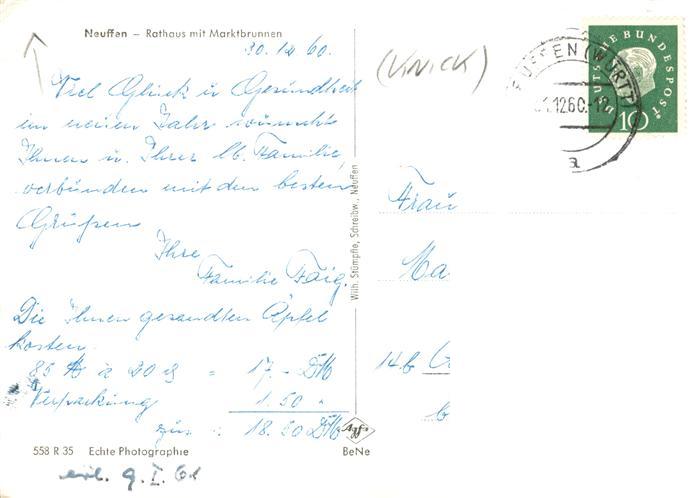 Neuffen – Rathaus mit Marktbrunnen
30.12.60.
(KNICK)
Viel Glück u Gesundheit
im neuen Jahr wünscht
Ihnen u. Ihrer lb. Familie,
verbunden mit den besten
Grüßen
Ihre
Familie Faig.
Die Ihnen gesandten Äpfel
kosten
85 ℔ à 20 ₰ = 17.- DM
Verpackung 1.50 "
zus. : 18.50 DM
558 R 35 Echte Photographie
BeNe
erl. 9. I. 61
Wilh. Stümpfle, Schreibw., Neuffen
Agfa
DEUTSCHE BUNDESPOST
10
NEUFFEN (WÜRTT)
31.12.60.-12
a
Frau
Ma
14b